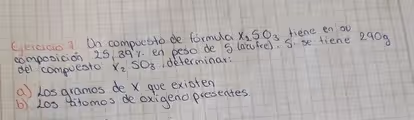 Ejercicio 1 Un compuesto de fórmula X₂SO₃ tiene en su
composición 25,39% en peso de S (azufre). Si se tiene 290g
del compuesto X₂SO₃, determinar:
a) Los gramos de X que existen
b) Los átomos de oxígeno presentes